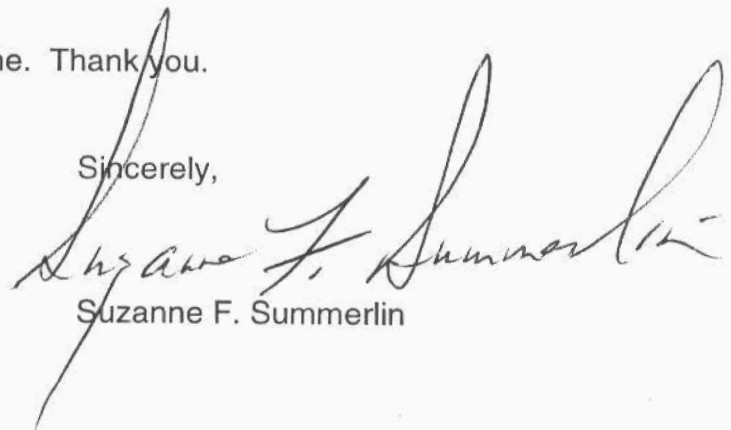 ne. Thank you.
Sincerely,
Suzanne F. Summerlin
Suzanne F. Summerlin